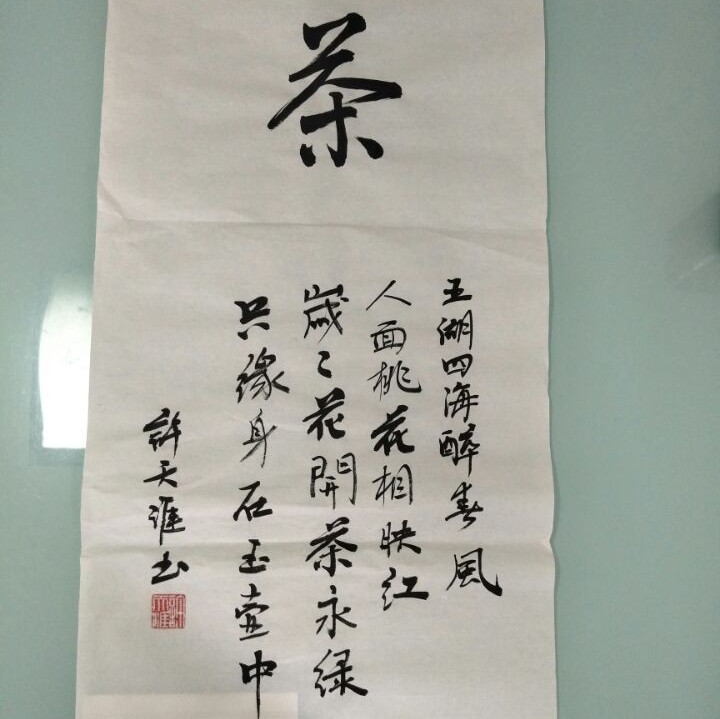 茶
五湖四海醉春風
人面桃花相映红
歲々花開茶永绿
只缘身在玉壶中
許天涯书